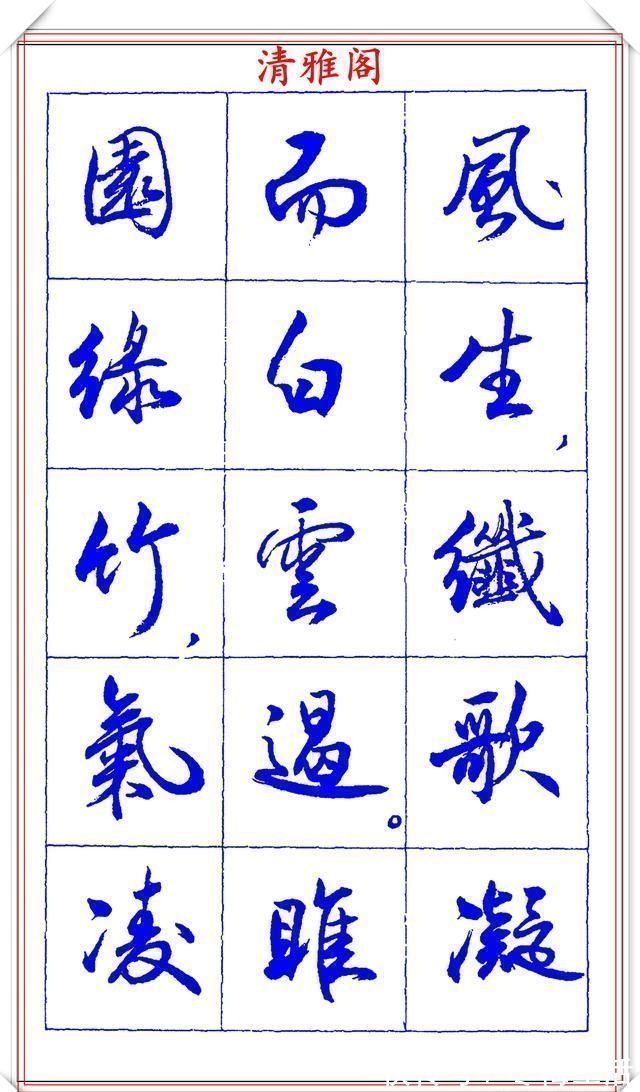 清雅阁
風生，纖歌凝
而白雲遏。睢
園綠竹，氣凌